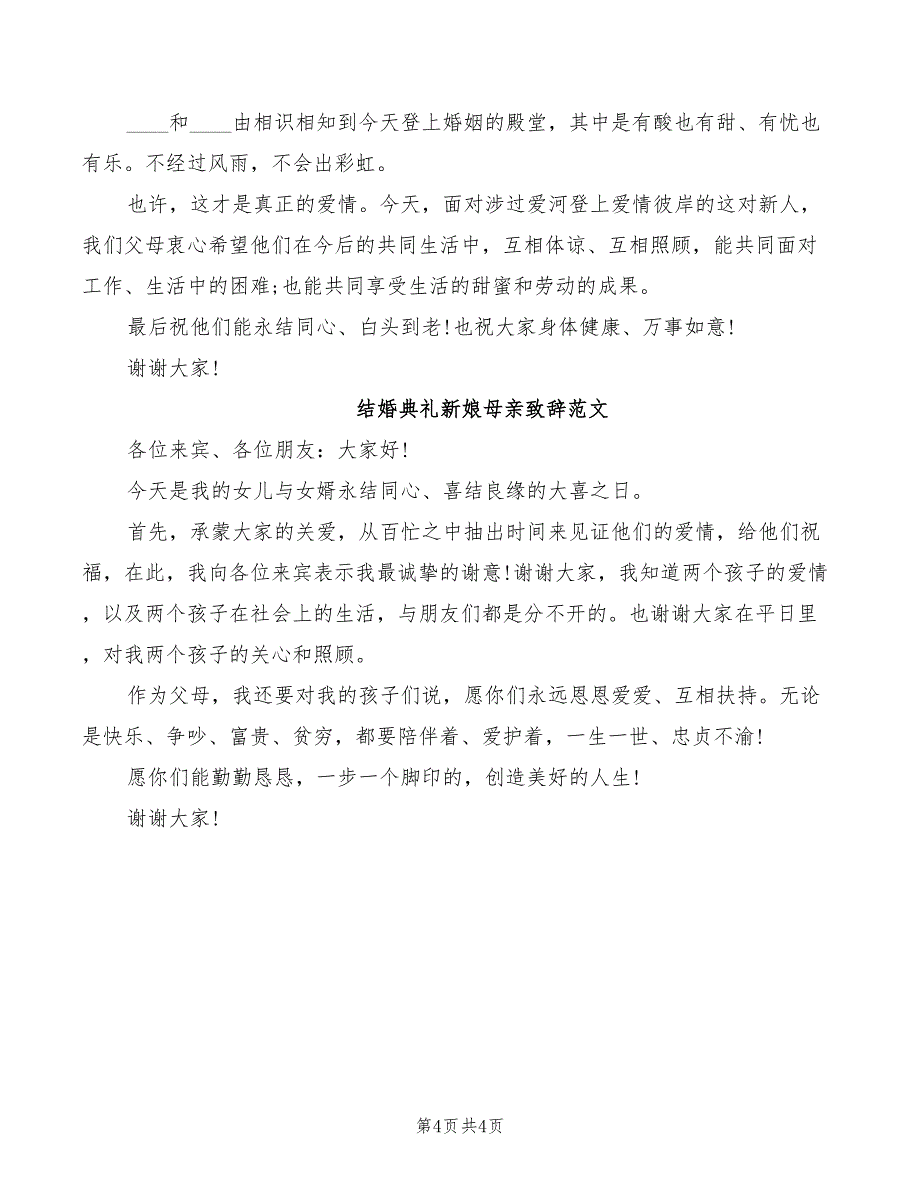 ____和____由相识相知到今天登上婚姻的殿堂，其中是有酸也有甜、有忧也
有乐。不经过风雨，不会出彩虹。
也许，这才是真正的爱情。今天，面对涉过爱河登上爱情彼岸的这对新人，
我们父母衷心希望他们在今后的共同生活中，互相体谅、互相照顾，能共同面对
工作、生活中的困难;也能共同享受生活的甜蜜和劳动的成果。
最后祝他们能永结同心、白头到老!也祝大家身体健康、万事如意!
谢谢大家!
结婚典礼新娘母亲致辞范文
各位来宾、各位朋友：大家好!
今天是我的女儿与女婿永结同心、喜结良缘的大喜之日。
首先，承蒙大家的关爱，从百忙之中抽出时间来见证他们的爱情，给他们祝
福，在此，我向各位来宾表示我最诚挚的谢意!谢谢大家，我知道两个孩子的爱情
，以及两个孩子在社会上的生活，与朋友们都是分不开的。也谢谢大家在平日里
，对我两个孩子的关心和照顾。
作为父母，我还要对我的孩子们说，愿你们永远恩恩爱爱、互相扶持。无论
是快乐、争吵、富贵、贫穷，都要陪伴着、爱护着，一生一世、忠贞不渝!
愿你们能勤勤恳恳，一步一个脚印的，创造美好的人生!
谢谢大家!
第4页 共4页